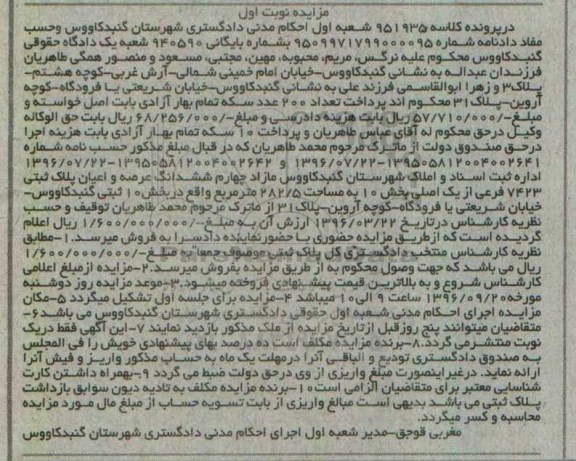 مزایده نوبت اول
درپرونده کلاسه 951935 شعبه اول احکام مدنی دادگستری شهرستان گنبدکاووس وحسب
مفاد دادنامه شماره 9509971799000095 بشماره بایگانی 940590 شعبه یک دادگاه حقوقی
گنبدکاووس محکوم علیه نرگس، مریم، محبوبه، مهین، مجتبی، مسعود و منصور همگی طاهریان
فرزندان عبداله به نشانی گنبدکاووس-خیابان امام خمینی شمالی-آرش غربی-کوچه هشتم-
پلاک3 و زهرا ابوالقاسمی فرزند علی به نشانی گنبدکاووس-خیابان شریعتی یا فرودگاه-کوچه
آروین-پلاک31 محکوم اند پرداخت تعداد 200 عدد سکه تمام بهار آزادی بابت اصل خواسته و
مبلغ-/57/710/000 ریال بابت هزینه دادرسی و مبلغ-/68/256/000 ریال بابت حق الوکاله
وکیل درحق محکوم له آقای عباس طاهریان و پرداخت 10 سکه تمام بهار آزادی بابت هزینه اجرا
درحق صندوق دولت از ماترک مرحوم محمد طاهریان که در قبال مبلغ مذکور حسب نامه شماره
139505812004002641-1396/07/22 و 139505812004002642-1396/07/22
اداره ثبت اسناد و املاک شهرستان گنبدکاووس مازاد چهارم ششدانگ عرصه و اعیان پلاک ثبتی
7423 فرعی از یک اصلی بخش 10 به مساحت 282/5 متر مربع واقع دربخش 10 ثبتی گنبدکاووس-
خیابان شریعتی یا فرودگاه-کوچه آروین-پلاک31 از ماترک مرحوم محمد طاهریان توقیف و حسب
نظریه کارشناس درتاریخ 1396/03/22 ارزش آن به مبلغ-/1/600/000/000 ریال اعلام
گردیده است که ازطریق مزایده حضوری با حضور نماینده دادسرا به فروش میرسد.1-مطابق
نظریه کارشناس منتخب دادگستری کل پلاک ثبتی موصوف جمعا به مبلغ -/1/600/000/000
ریال می باشد که جهت وصول محکوم به از طریق مزایده بفروش میرسد.2-مزایده از مبلغ اعلامی
کارشناس شروع و به بالاترین قیمت پیشنهادی فروخته میشود.3-موعد مزایده روز دوشنبه
مورخه 1396/09/20 ساعت 9 الی10 میباشد 4-مزایده برای جلسه اول تشکیل میگردد 5-مکان
مزایده اجرای احکام مدنی شعبه اول حقوقی دادگستری شهرستان گنبدکاووس می باشد6-
متقاضیان میتوانند پنج روز قبل از تاریخ مزایده از ملک مذکور بازدید نمایند 7-این آگهی فقط دریک
نوبت منتشرمی گردد.8-برنده مزایده مکلف است ده درصد بهای پیشنهادی خویش را فی المجلس
به صندوق دادگستری تودیع و الباقی آنرا درمهلت یک ماه به حساب مذکور واریز و فیش آنرا
ارائه نماید. درغیراینصورت مبلغ واریزی از وی درحق دولت ضبط می گردد 9-بهمراه داشتن کارت
شناسایی معتبر برای متقاضیان الزامی است10-برنده مزایده مکلف به تادیه دیون سوابق بازداشت
پلاک ثبتی می باشد بدیهی است مبالغ واریزی از بابت تسویه حساب از مبلغ مال مورد مزایده
محاسبه و کسر میگردد.
مغربی قوجق-مدیر شعبه اول اجرای احکام مدنی دادگستری شهرستان گنبدکاووس